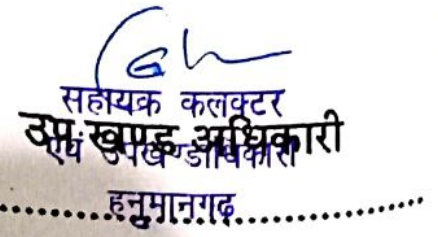 सहायक कलक्टर
उप खण्ड अधिकारी
एवं उपखण्डाधिकारी
हनुमानगढ़